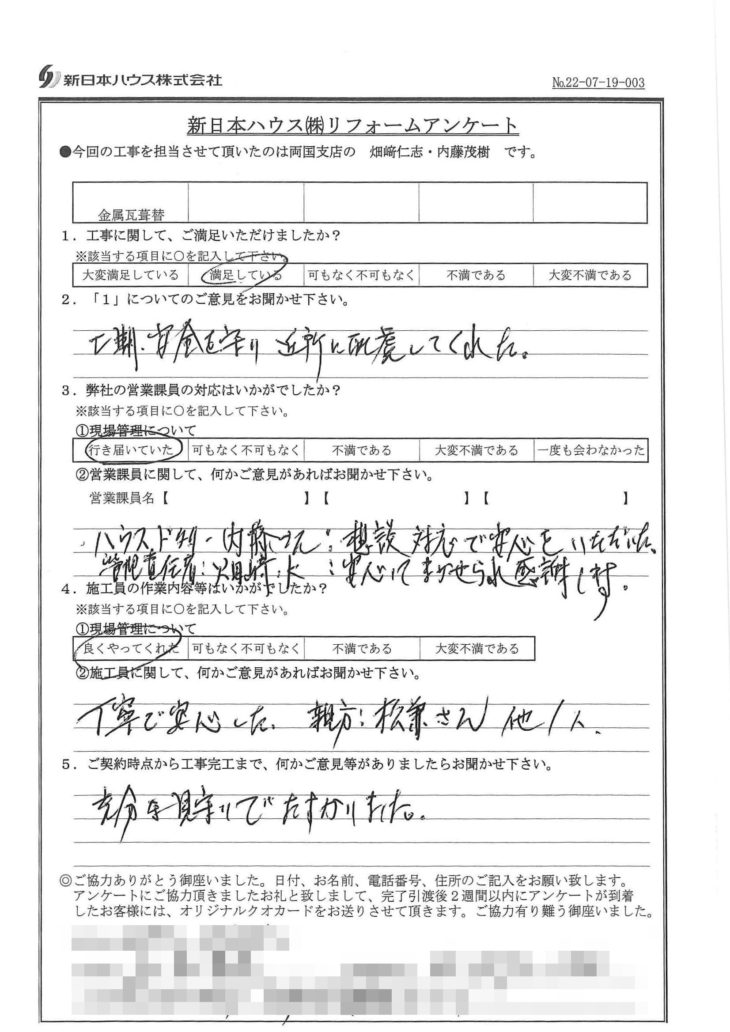 新日本ハウス株式会社
№22-07-19-003
新日本ハウス㈱リフォームアンケート
●今回の工事を担当させて頂いたのは両国支店の 畑﨑仁志・内藤茂樹 です。
金属瓦葺替
1．工事に関して、ご満足いただけましたか？
※該当する項目に○を記入して下さい。
大変満足している 満足している 可もなく不可もなく 不満である 大変不満である
2．「1」についてのご意見をお聞かせ下さい。
工期、安全を守り 近所に配慮してくれた。
3．弊社の営業課員の対応はいかがでしたか？
※該当する項目に○を記入して下さい。
①現場管理について
行き届いていた 可もなく不可もなく 不満である 大変不満である 一度も会わなかった
②営業課員に関して、何かご意見があればお聞かせ下さい。
営業課員名【 】【 】【 】
ハウスドクター・内藤さん：相談 対応で安心をいただいた。
管理責任者： ：安心してまかせられ感謝します。
4．施工員の作業内容等はいかがでしたか？
※該当する項目に○を記入して下さい。
①現場管理について
良くやってくれた 可もなく不可もなく 不満である 大変不満である
②施工員に関して、何かご意見があればお聞かせ下さい。
丁寧で安心した、 親方： さん 他1人、
5．ご契約時点から工事完工まで、何かご意見等がありましたらお聞かせ下さい。
充分な見守りでたすかりました。
◎ご協力ありがとう御座いました。日付、お名前、電話番号、住所のご記入をお願い致します。
アンケートにご協力頂きましたお礼と致しまして、完了引渡後2週間以内にアンケートが到着
したお客様には、オリジナルクオカードをお送りさせて頂きます。ご協力有り難う御座いました。